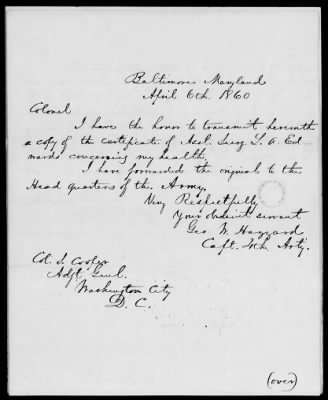 Baltimore Maryland
April 6th. 1860
Colonel
I have the honor to transmit herewith
a copy of the certificate of Asst. Surg. L. A. Ed
wards concerning my health.
I have forwarded the original to the
Head quarters of the Army.
Very Respectfully
Your obedient servant
Geo W. Hazzard
Capt. 4th Arty.
Col. S. Cooper
Adjt Genl.
Washington City
D. C.
(over)